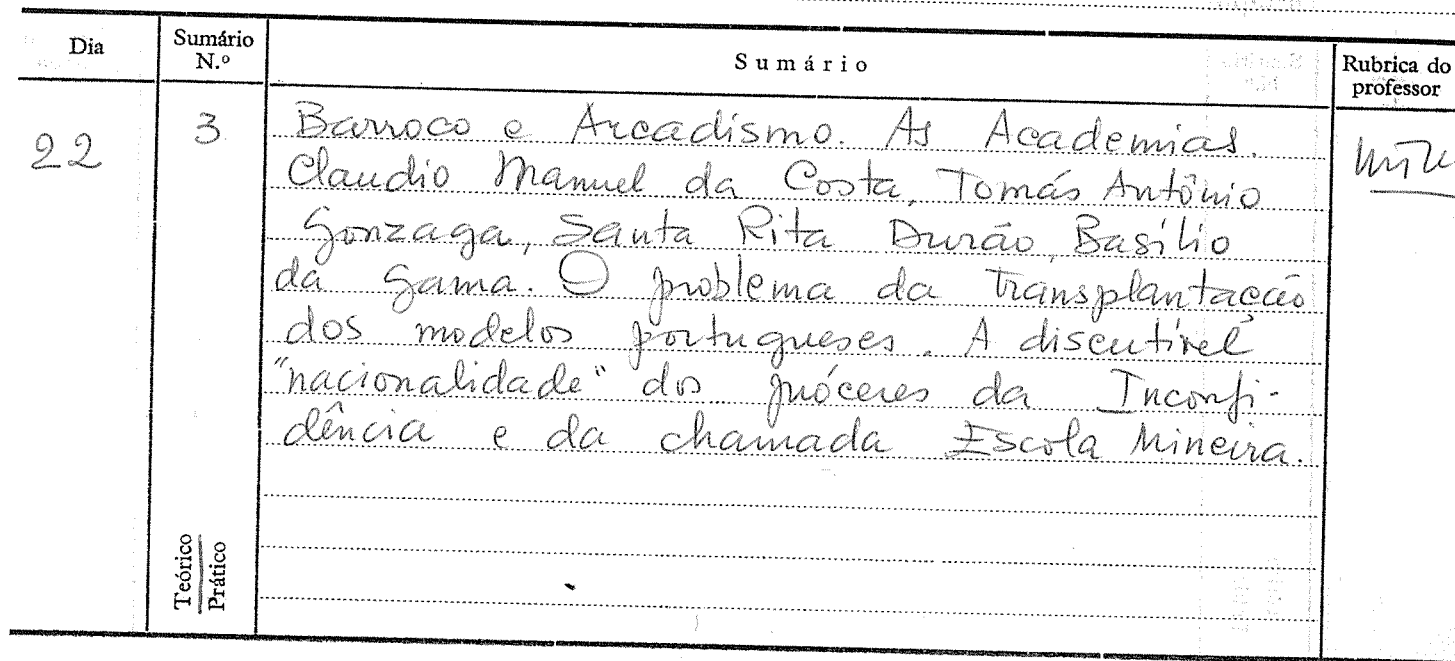 Dia
Sumário
N.º
Sumário
Rubrica do
professor
22
3
Barroco e Arcadismo. As Academias.
Claudio Manuel da Costa, Tomás Antônio
Gonzaga, Santa Rita Durão, Basílio
da Gama. O problema da transplantação
dos modelos portugueses. A discutível
"nacionalidade" dos próceres da Inconfi-
dência e da chamada Escola Mineira.
Teórico
Prático